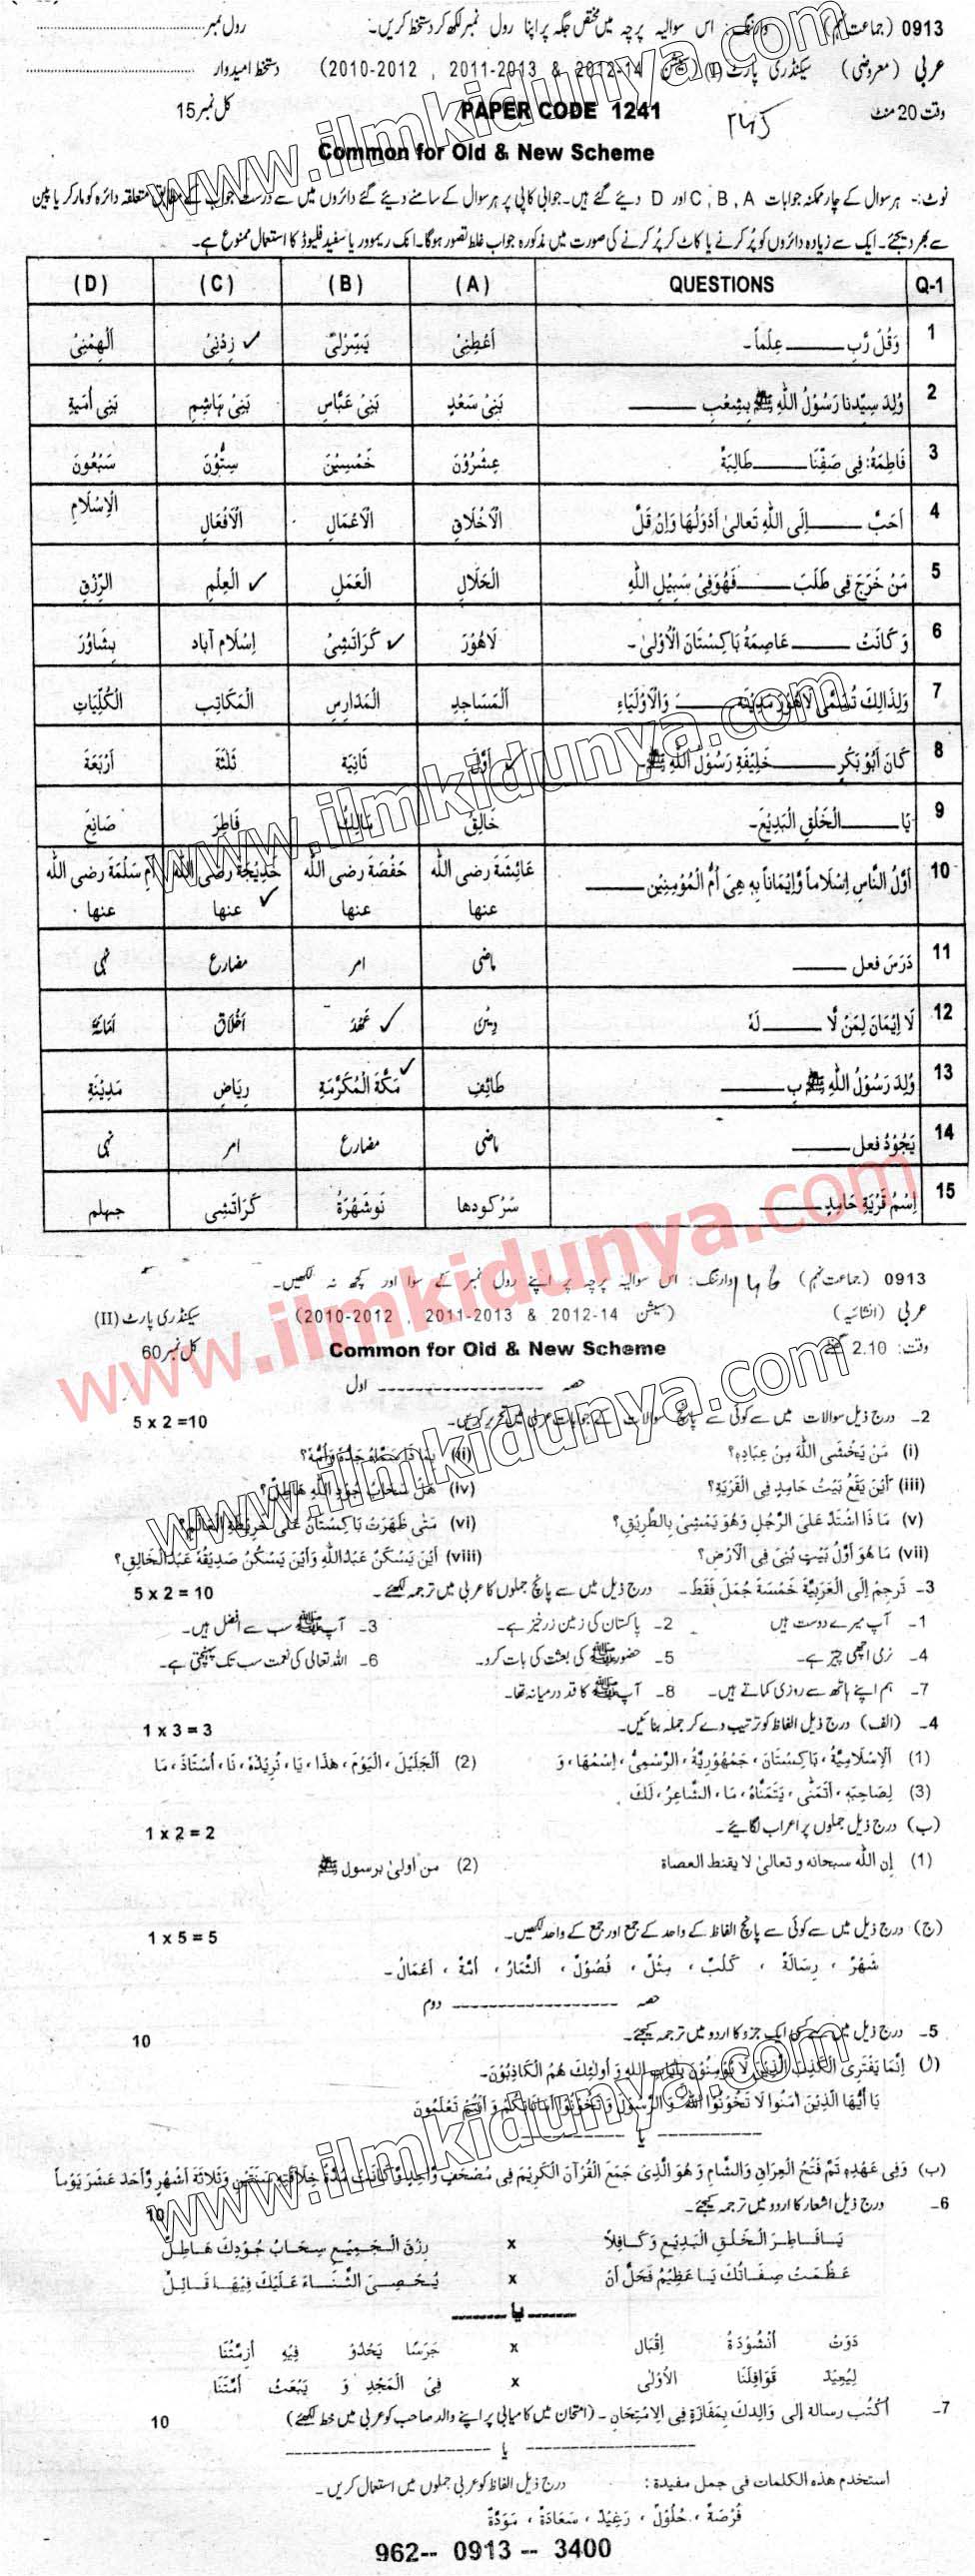 0913 (جماعت نہم) وارننگ: اس سوالیہ پرچہ میں مختص جگہ پر اپنا رول نمبر لکھ کر دستخط کریں۔ رول نمبر
عربی (معروضی) سیکنڈری پارٹ (I) سیشن (2010-2012 , 2011-2013 & 2012-14) دستخط امیدوار
وقت 20 منٹ PAPER CODE 1241 کل نمبر 15
Common for Old & New Scheme
نوٹ:- ہر سوال کے چار ممکنہ جوابات A , B , C اور D دیئے گئے ہیں۔ جوابی کاپی پر ہر سوال کے سامنے دیئے گئے دائروں میں سے درست جواب کے مطابق متعلقہ دائرہ کو مارکر یا پین
سے بھر دیجئے۔ ایک سے زیادہ دائروں کو پُر کرنے یا کاٹ کر پُر کرنے کی صورت میں مذکورہ جواب غلط تصور ہوگا۔ انک ریموور یا سفید فلیوڈ کا استعمال ممنوع ہے۔
Q-1 QUESTIONS (A) (B) (C) (D)
1 وَقُلْ رَّبِ ـــــ عِلْماً۔ اَعْطِنِیْ یَسِّرْلِیْ زِدْنِیْ اَلْهِمْنِیْ
2 وُلِدَ سیِّدنا رَسُوْلُ اللهِ ﷺ بِشِعْبِ ـــــ بَنِیْ سَعْدٍ بَنِیْ عَبَّاسٍ بَنِیْ هَاشِمٍ بَنِیْ اُمَیةِ
3 فَاطِمَةُ: فِی صَفِّنَا ـــــ طَالِبَةً عِشْرُوْنَ خَمْسِیْنَ سِتُّوْنَ سَبْعُوْنَ
4 اَحَبَّ ـــــ اِلَی اللهِ تَعَالیٰ اَدْوَلُهَا وَاِنْ قَلَّ اَلْاَخْلَاقِ الْاَعْمَالِ الْاَفْعَالِ الْاِسْلَامِ
5 مَنْ خَرَجَ فِی طَلَبَ ـــــ فَهُوَفِیْ سَبِیْلِ اللهِ الْحَلَالِ الْعَمَلِ الْعِلْمِ الرِّزْقِ
6 وَ کَانَتْ ـــــ عَاصِمَةُ بَاکِسْتَانَ الْاُوْلیٰ۔ لَاهُوْرَ کَرَاتَشِیْ اِسْلَام آباد بِشَاوَرَ
7 وَلِذَالِكَ تُسَمّٰی لَاهُوْرَ مَدِیْنَة ـــــ وَالْاَوْلِیَاءِ اَلْمَسَاجِدِ الْمَدَارِسِ الْمَکَاتِبِ الْکُلِّیَاتِ
8 کَانَ اَبُوْ بَکْرٍ ـــــ خَلِیْفَةِ رَسُوْلُ اللهِ ﷺ۔ اَوَّلَ ثَانِیَة ثَلٰثَة اَرْبَعَة
9 یَا ـــــ الْخَلْقِ الْبَدِیْعَ۔ خَالِقُ مَالِكُ فَاطِرَ صَانِعَ
10 اَوَّلُ النَّاسِ اِسْلَاماً وَّاِیْمَاناً بِهٖ هِیَ اُمُّ الْمُؤْمِنِیْن ـــــ عَائِشَة رضی الله عنها حَفْصَة رضی الله عنها خَدِیْجَة رضی الله عنها اُم سَلْمَة رضی الله عنها
11 دَرَسَ فعل ـــــ ماضی امر مضارع نہی
12 لَا اِیْمَانَ لِمَنْ لَّا ـــــ لَهٗ دِیْنُ عَهْدَ اَخْلَاقُ اَمَانَةُ
13 وُلِدَ رَسُوْلُ اللهِ ﷺ بِ ـــــ طَائِفِ مَکَّةَ الْمُکَرَّمَةِ رِیَاضِ مَدِیْنَةِ
14 یَجُوْدُ فعل ـــــ ماضی مضارع امر نہی
15 اِسْمُ قَرْیَةِ حَامِدٍ ـــــ سَرْکودها نَوشَهْرَةُ کَرَاتَشِی جهلم
0913 (جماعت نہم) وارننگ: اس سوالیہ پرچہ پر اپنے رول نمبر کے سوا اور کچھ نہ لکھیں۔
عربی (انشائیہ) (سیشن 2010-2012 , 2011-2013 & 2012-14) سیکنڈری پارٹ (II)
وقت: 2.10 گھنٹے Common for Old & New Scheme کل نمبر 60
حصہ ـــــ اول
2۔ درج ذیل سوالات میں سے کوئی سے پانچ سوالات کے جوابات عربی میں تحریر کریں۔ 5 x 2 =10
(i) مَنْ یَخْشَی اللهَ مِنْ عِبَادِهٖ؟ (ii) بِمَا ذَا سَمَّاهُ جَدُّهٗ وَاُمُّهٗ؟
(iii) اَیْنَ یَقَعُ بَیْتُ حَامِدٍ فِی الْقَرْیَةِ؟ (iv) هَلْ سَحَابُ جُوْدِ اللهِ هَاطِلٌ؟
(v) مَا ذَا اشْتَدَّ عَلَی الرَّجُلِ وَهُوَ یَمْشِیْ بِالطَّرِیْقِ؟ (vi) مَتٰی ظَهَرَتْ بَاکِسْتَانُ عَلٰی خَرِیْطَةِ الْعَالَمِ؟
(vii) مَا هُوَ اَوَّلُ بَیْتٍ بُنِیَ فِی الْاَرْضِ؟ (viii) اَیْنَ یَسْکُنُ عَبْدُاللهِ وَاَیْنَ یَسْکُنُ صَدِیْقُهٗ عَبْدُالْخَالِقِ؟
3۔ تَرجِمْ اِلَی الْعَرَبِیَّةِ خَمْسَةَ جُمَلٍ فَقَطْ۔ درج ذیل میں سے پانچ جملوں کا عربی میں ترجمہ لکھئے۔ 5 x 2 = 10
1۔ آپ میرے دوست ہیں 2۔ پاکستان کی زمین زرخیز ہے۔ 3۔ آپ ﷺ سب سے افضل ہیں۔
4۔ نرمی اچھی چیز ہے۔ 5۔ حضور ﷺ کی بعثت کی بات کرو۔ 6۔ اللہ تعالی کی نعمت سب تک پہنچتی ہے۔
7۔ ہم اپنے ہاتھ سے روزی کماتے ہیں۔ 8۔ آپ ﷺ کا قد درمیانہ تھا۔
4۔ (الف) درج ذیل الفاظ کو ترتیب دے کر جملہ بنائیں۔ 1 x 3 = 3
(1) اَلْاِسْلَامِیَّةُ ، بَاکِسْتَانَ ، جَمْهُوْرِیَّةُ ، الرَّسْمِیُّ ، اِسْمُهَا ، وَ (2) اَلْجَلِیْلَ ، الْیَوْمَ ، هٰذَا ، یَا ، نُرِیْدُهٗ ، نَا ، اُسْتَاذَ ، مَا
(3) لِصَاحِبِهٖ ، اَتَمَنّٰی ، یَتَمَنَّاهُ ، مَا ، الشَّاعِرُ ، لَكَ
(ب) درج ذیل جملوں پر اعراب لگائیے۔ 1 x 2 = 2
(1) إن اللہ سبحانه و تعالیٰ لا یقنط العصاة (2) من اولیٰ برسول ﷺ
(ج) درج ذیل میں سے کوئی سے پانچ الفاظ کے واحد کے جمع اور جمع کے واحد لکھیں۔ 1 x 5 = 5
شَهْرٌ ، رِسَالَةٌ ، کَلْبٌ ، مِثْلٌ ، فُصُوْلٌ ، اَلثِّمَارُ ، اُمَّةٌ ، اَعْمَالٌ۔
حصہ ـــــ دوم
5۔ درج ذیل میں سے کسی ایک جزو کا اردو میں ترجمہ کیجئے۔ 10
(ا) اِنَّمَا یَفْتَرِی الْکَذِبَ الَّذِیْنَ لَا یُؤْمِنُوْنَ بِاٰیَاتِ اللهِ وَ اُولٰئِكَ هُمُ الْکَاذِبُوْنَ۔
یَا اَیُّهَا الَّذِیْنَ اٰمَنُوْا لَا تَخُوْنُوْا اللهَ وَالرَّسُوْلَ وَ تَخُوْنُوْا اَمَانَاتِکُمْ وَ اَنْتُمْ تَعْلَمُوْنَ
یا
(ب) وَفِی عَهْدِهٖ تَمَّ فَتْحُ الْعِرَاقِ وَالشَّامِ وَ هُوَ الَّذِیْ جَمَعَ الْقُرْآنَ الْکَرِیْمَ فِی مُصْحَفٍ وَّاحِدٍ وَّکَانَتْ مُدَّةُ خِلَافَتِهٖ سَنَتَیْنِ وَثَلَاثَةَ اَشْهُرٍ وَّاَحَدَ عَشَرَ یَوْماً
6۔ درج ذیل اشعار کا اردو میں ترجمہ کیجئے۔ 10
یَـا فَـاطِـرَ الْـخَـلْـقِ الْبَـدِیْـعِ وَ کَـافِـلًا x رِزْقَ الْـجَـمِیْـعِ سِحَـابُ جُـوْدِكَ هَـاطِـلٌ
عَـظُـمَـتْ صِـفَـاتُكَ یَـا عَظِیْمُ فَجَلَّ اَنْ x یُـحْصِـیَ الثَّـنَـاءَ عَلَیْكَ فِیْهَـا قَـائِـلٌ
یا
دَوَتْ اُنْشُوْدَةُ اِقْبَال x جَرَسًا یَحْدُوْ فِیْهِ اَزِمَّتُنَا
لِیُعِیْدَ قَوَافِلَنَا الْاُوْلٰی x فِیْ الْمَجْدِ وَ یَبْعَثُ اُمَّتَنَا
7۔ اُکْتُب رسالة اِلٰی وَالِدِكَ بِمَفَازَةٍ فِی الْاِمْتِحَانِ۔ (امتحان میں کامیابی پر اپنے والد صاحب کو عربی میں خط لکھئے) 10
یا
استخدم هذه الكلمات فی جمل مفیدة : درج ذیل الفاظ کو عربی جملوں میں استعمال کریں۔
فُرْصَةٌ ، حُلُوْلٌ ، رَغِیْدٌ ، سَعَادَةٌ ، مَوَدَّةٌ
962-- 0913 -- 3400
www.ilmkidunya.com